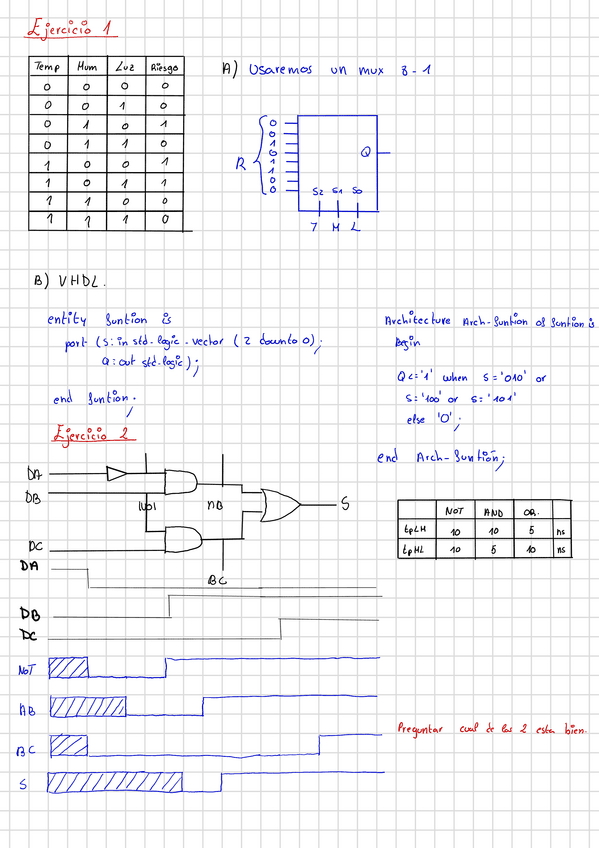 Ejercicio 1
Temp Hum Luz Riesgo
0 0 0 0
0 0 1 0
0 1 0 1
0 1 1 0
1 0 0 1
1 0 1 1
1 1 0 0
1 1 1 0
A) Usaremos un mux 8-1
R
0
0
1
0
1
1
0
0
Q
S2 S1 S0
T H L
B) VHDL.
entity funtion is
port (S: in std-logic-vector (2 downto 0);
Q: out std-logic);
end funtion;
Architecture Arch-funtion of funtion is
Begin
Q <= '1' when S='010' or
S='100' or S='101'
else '0';
end Arch-funtion;
Ejercicio 2
DA
DB
DC
NOT
AB
BC
S
NOT AND OR.
tpLH 10 10 5 ns
tpHL 10 5 10 ns
DA
DB
DC
NOT
AB
BC
S
Preguntar cual de las 2 esta bien.